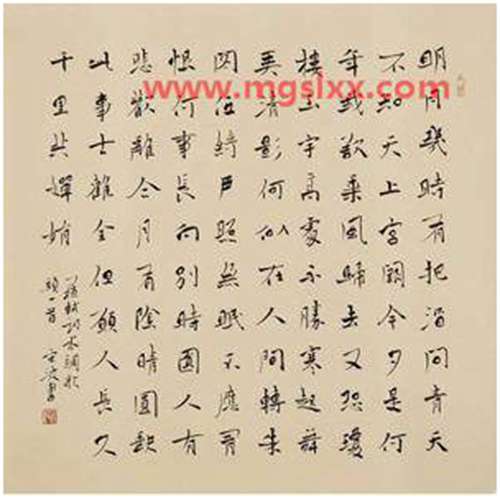 明月幾時有把酒問青天
不知天上宮闕今夕是何
年我欲乘風歸去又恐瓊
樓玉宇高處不勝寒起舞
弄清影何似在人間轉朱
閣低綺戶照無眠不應有
恨何事長向別時圓人有
悲歡離合月有陰晴圓缺
此事古難全但願人長久
千里共嬋娟
蘇軾詞水調歌
頭一首
書
www.mgslxx.com